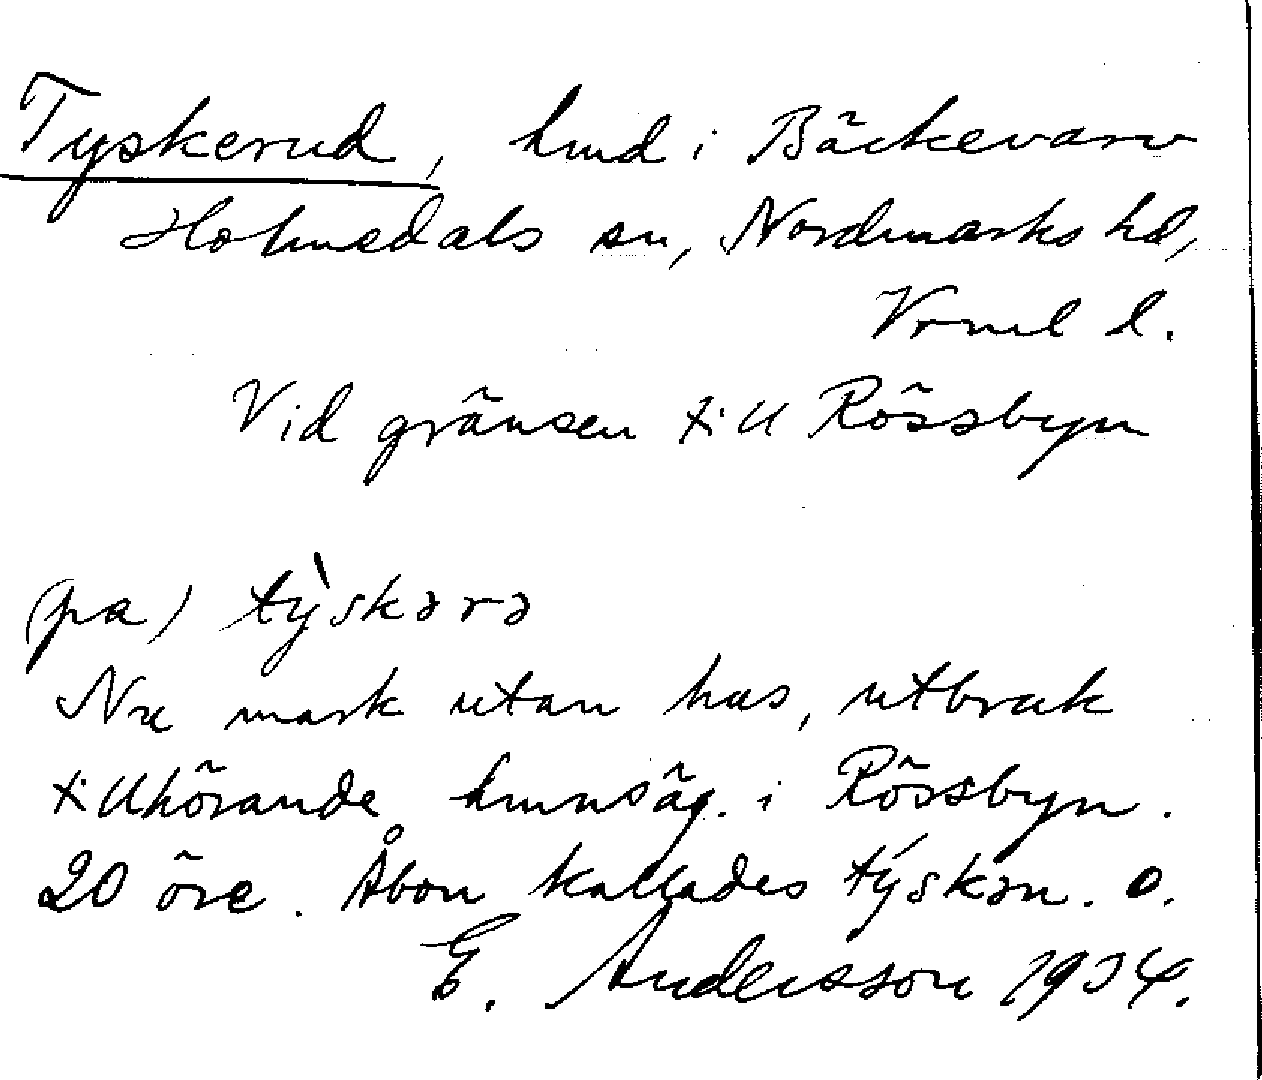 Tyskerud, hmd i Bäckevarv
Holmedals sn, Nordmarks hd,
Vrml l.
Vid gränsen till Rössbyn
(pa) tỳskərə
Nu mark utan hus, utbruk
tillhörande hmnsäg. i Rössbyn.
20 öre. Åbon kallades týskən. O.
E. Andersson 1934.